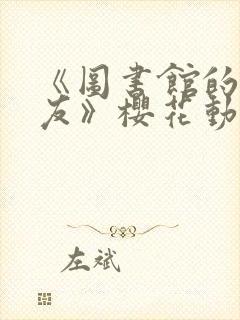 《圖書館的
友》櫻花動
左斌